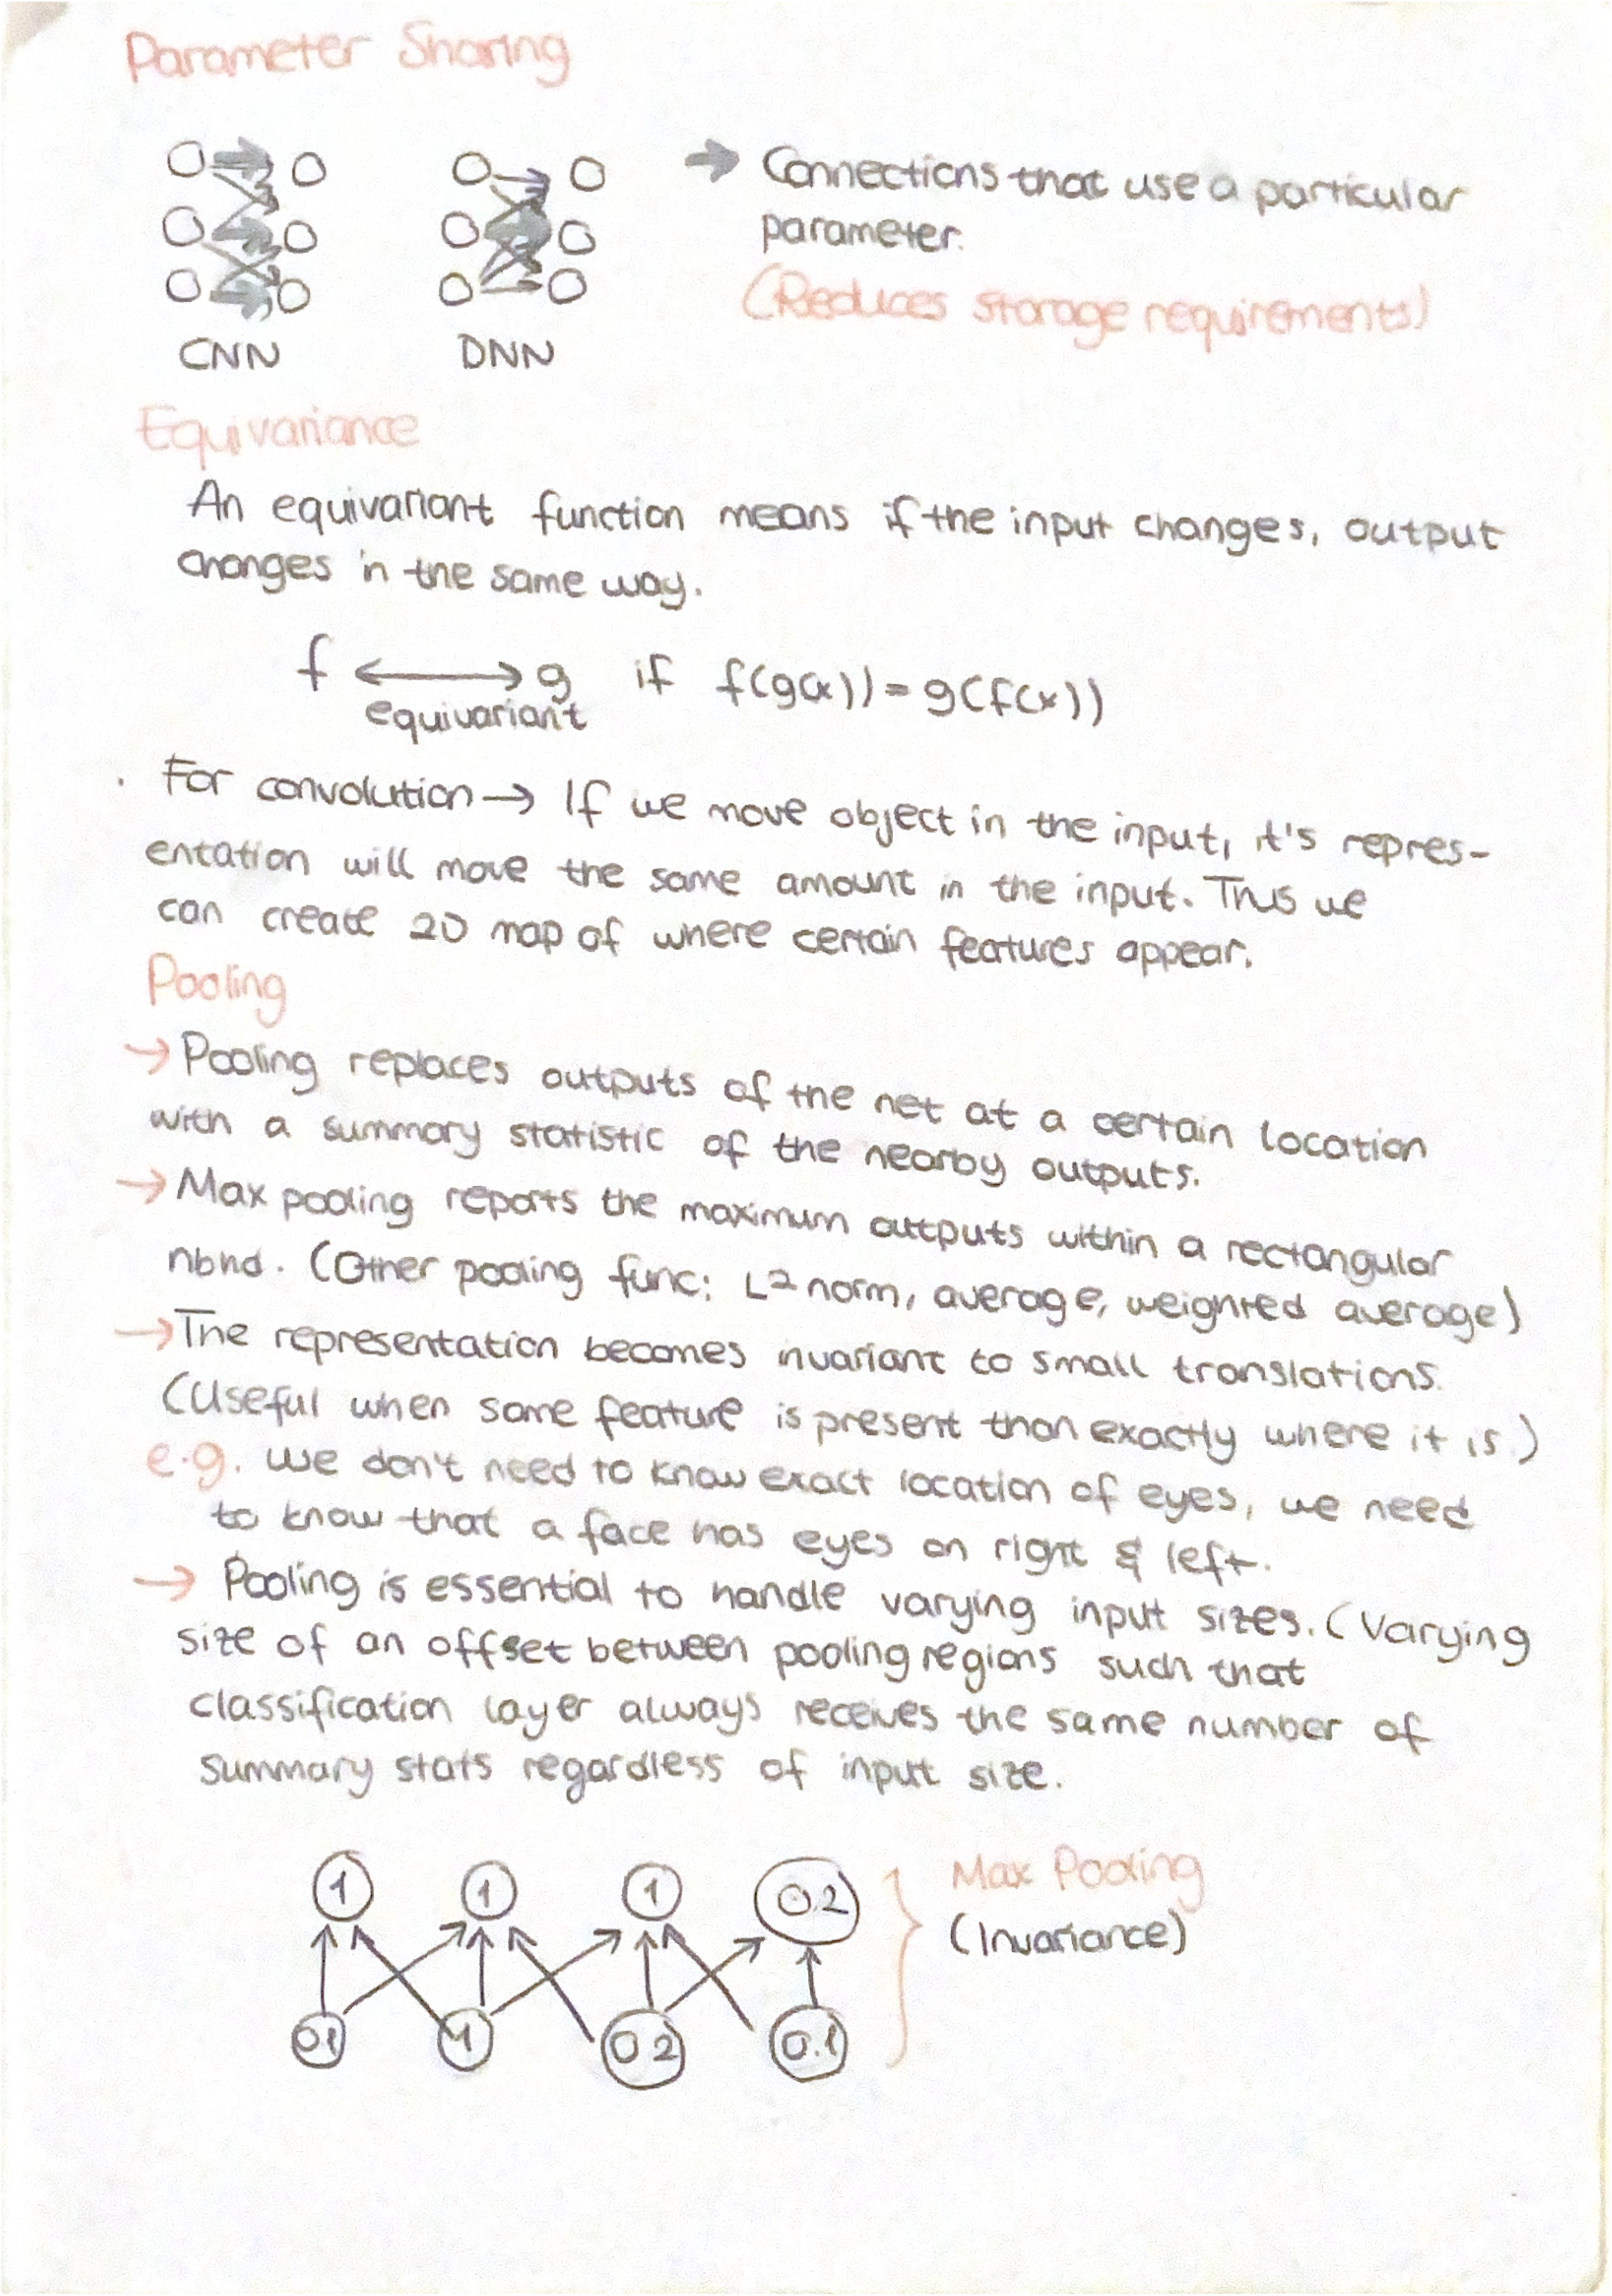 Parameter Sharing
→ Connections that use a particular
parameter.
(Reduces storage requirements)
CNN DNN
Equivariance
An equivariant function means if the input changes, output
changes in the same way.
f ⟷ g if f(g(x)) = g(f(x))
equivariant
. For convolution → If we move object in the input, it's repres-
entation will move the same amount in the input. Thus we
can create 2D map of where certain features appear.
Pooling
→ Pooling replaces outputs of the net at a certain location
with a summary statistic of the nearby outputs.
→ Max pooling reports the maximum outputs within a rectangular
nbhd. (Other pooling func: L² norm, average, weighted average)
→ The representation becomes invariant to small translations.
(Useful when some feature is present than exactly where it is.)
e.g. we don't need to know exact location of eyes, we need
to know that a face has eyes on right & left.
→ Pooling is essential to handle varying input sizes. (Varying
size of an offset between pooling regions such that
classification layer always receives the same number of
summary stats regardless of input size.
1 1 1 0.2 Max Pooling
(Invariance)
0.1 1 0.2 0.1